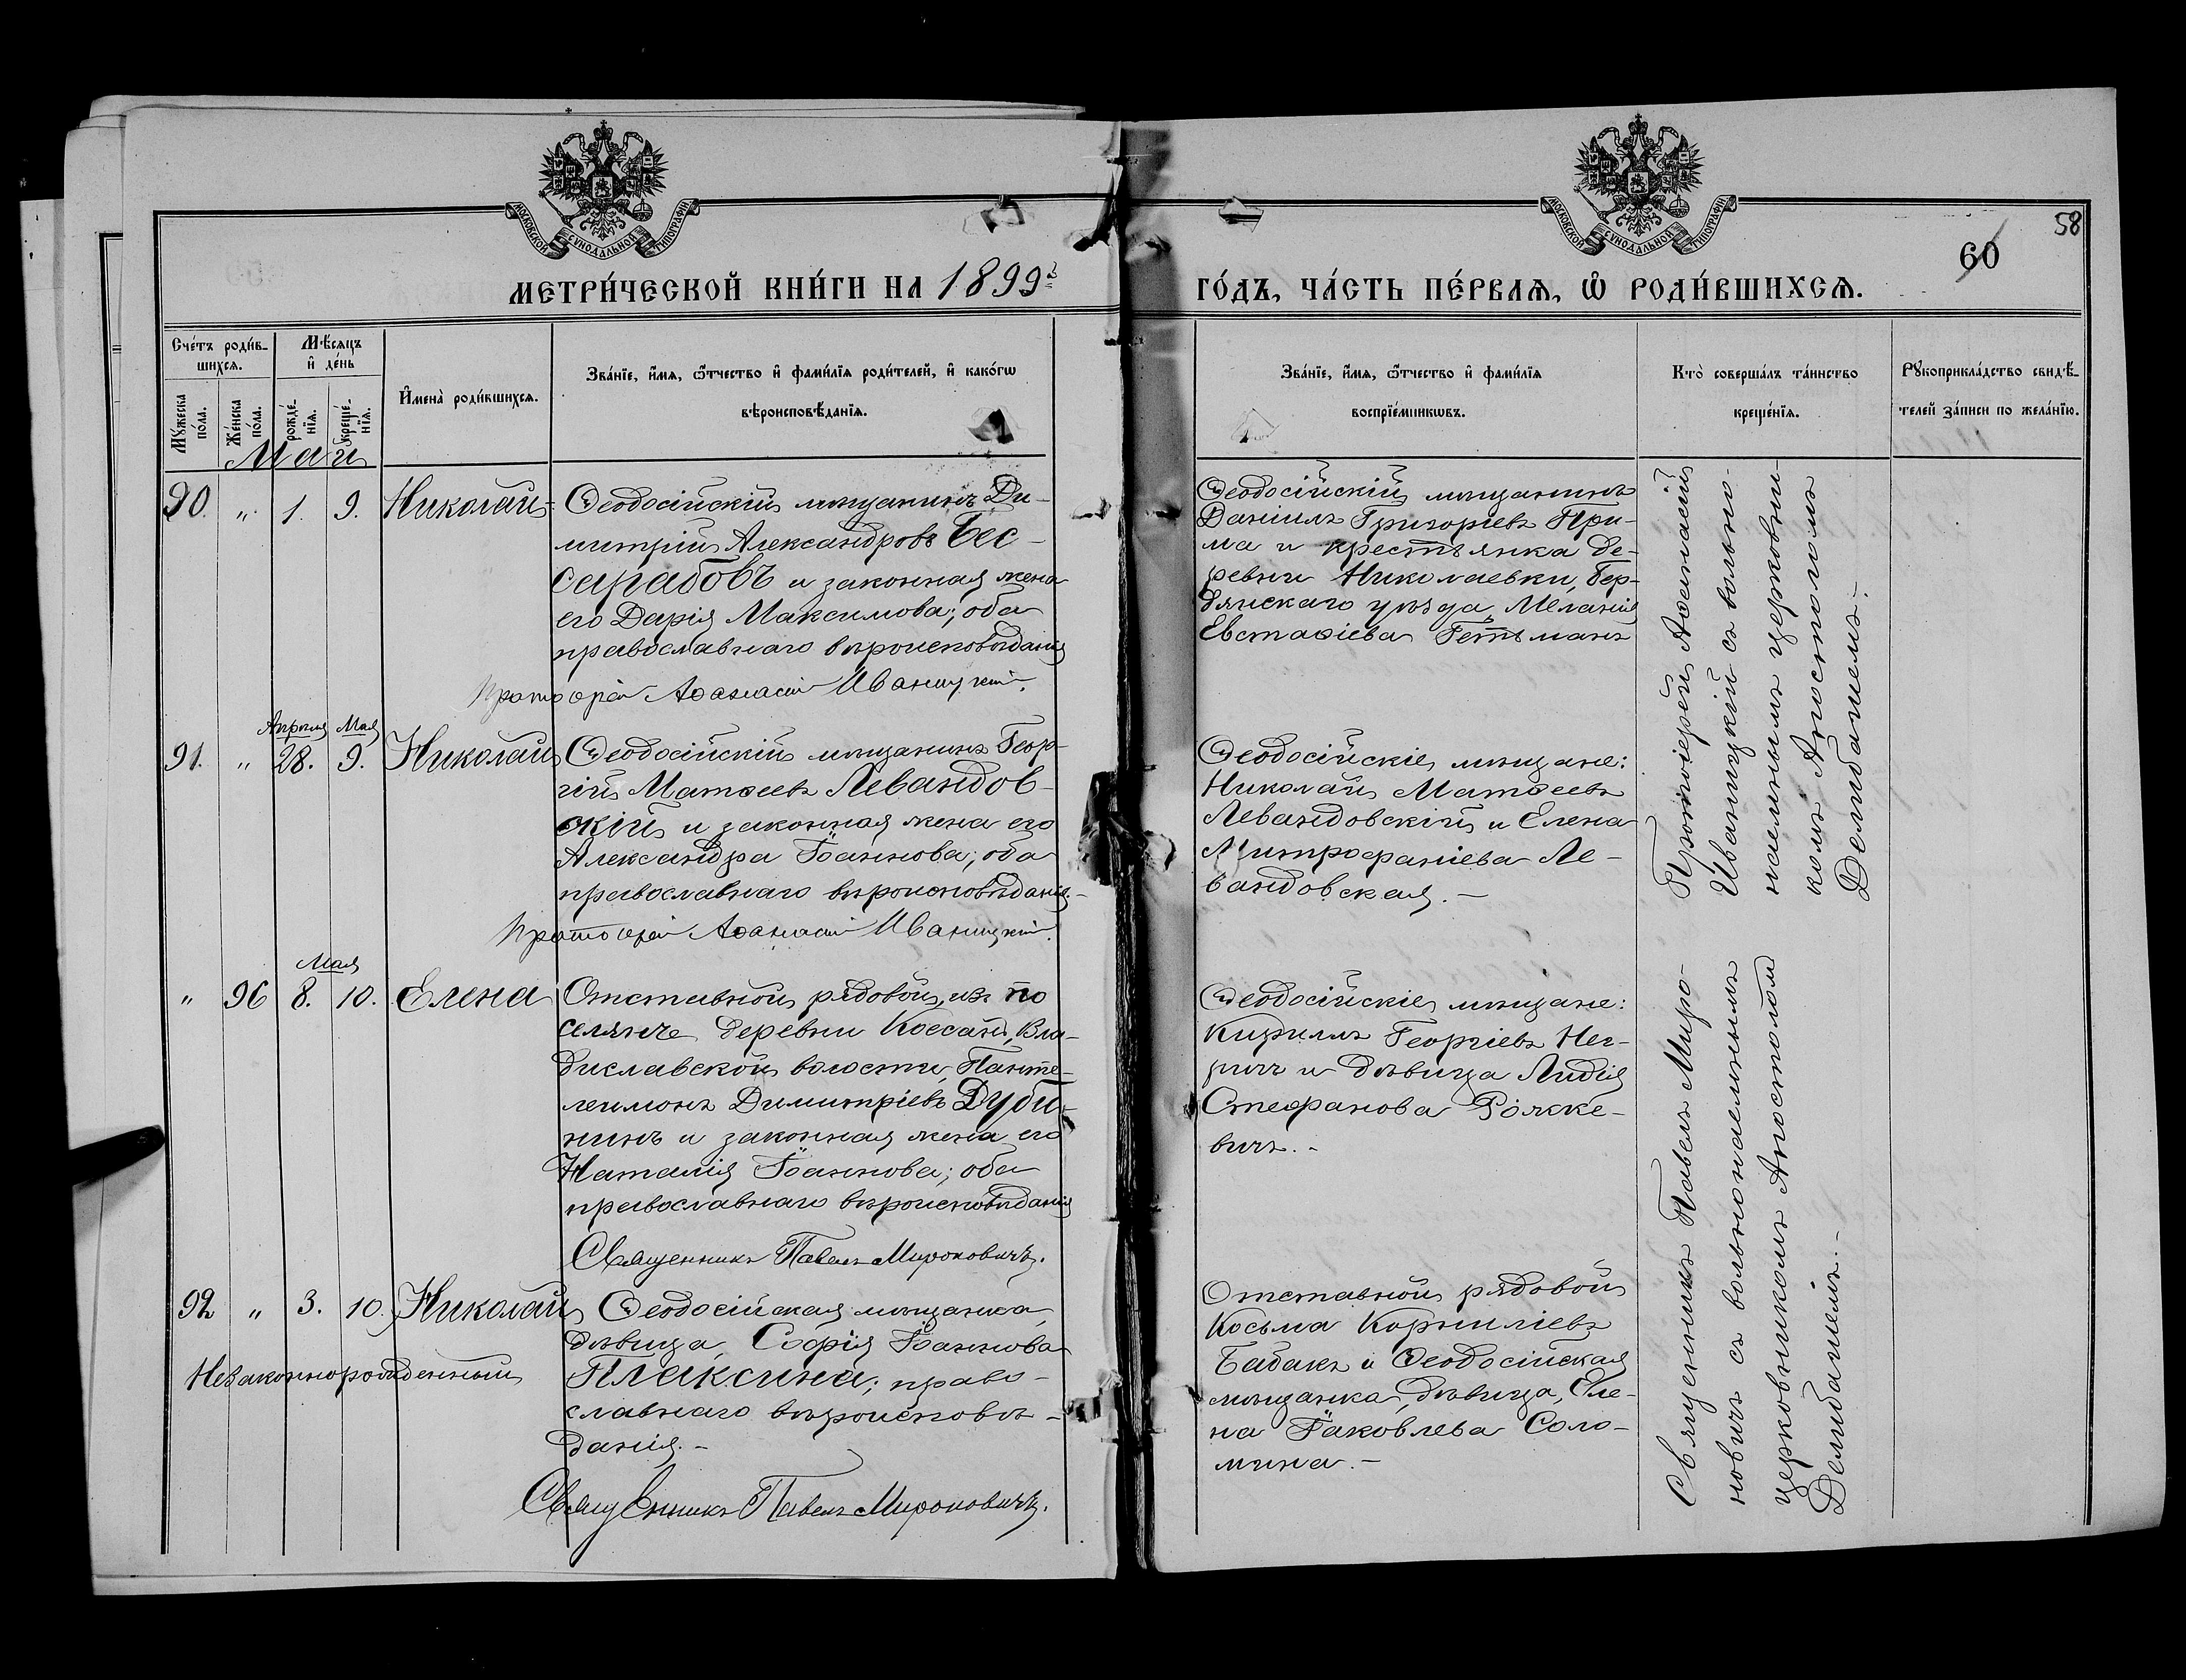 МОСКОВСКОЙ СѴНОДАЛЬНОЙ ТИПОГРАФІИ
МОСКОВСКОЙ СѴНОДАЛЬНОЙ ТИПОГРАФІИ
58
60
МЕТРИ́ЧЕСКОЙ КНИ́ГИ НА 1899й
ГО́ДЪ, ЧА́СТЬ ПЕ́РВАѦ, Ѽ РОДИ́ВШИХСѦ.
Сче́тъ роди́в-
шихсѧ.
Мѣ́сѧцъ
и҆ де́нь
Мꙋ́жеска по́ла.
Же́нска по́ла.
рожде́-
нїѧ.
креще́-
нїѧ.
И҆мена̀ роди́вшихсѧ.
Зва́нїе, и҆́мѧ, ѻ҆́тчество и҆ фами́лїѧ роди́телей, и҆ како́гѡ
вѣроисповѣ́данїѧ.
Зва́нїе, и҆́мѧ, ѻ҆́тчество и҆ фами́лїѧ
воспрїе́мникѡвъ.
Кто̀ соверша́лъ та́инство
креще́нїѧ.
Рꙋкоприкла́дство свидѣ́-
телей за́писи по жела́нїю.
Май
90. „ 1. 9. Николай
Ѳеодосійскій мѣщанинъ Ди-
митрій Александровъ Бес-
сарабовъ и законная жена
его Дарія Максимова; оба
православнаго вѣроисповѣданія
Протоіерей Аѳанасій Иваницкій.
Ѳеодосійскій мѣщанинъ
Даніилъ Григоріевъ При-
ма и крестьянка де-
ревни Николаевки, Бер-
дянскаго уѣзда, Меланія
Евстаѳіева Гетьманъ
Протоіерей Аѳанасій
Иваницкій съ вольно-
наемнымъ церковни-
комъ Апостоломъ
Делибашемъ.-
Апрѣля Мая
91. „ 28. 9. Николай
Ѳеодосійскій мѣщанинъ Геор-
гій Матѳеевъ Левандов-
скій и законная жена его
Александра Іоаннова; оба
православнаго вѣроисповѣданія.-
Протоіерей Аѳанасій Иваницкій.
Ѳеодосійскіе мѣщане:
Николай Матѳеевъ
Левандовскій и Елена
Митрофаніева Ле-
вандовская.-
Мая
„ 96 8. 10. Елена
Отставной рядовой, изъ по
селянъ деревни Коссанъ, Вла-
диславской волости, Панте-
леимонъ Димитріевъ Дуби-
нинъ и законная жена его
Наталія Іоаннова; оба
православнаго вѣроисповѣданія
Священникъ Павелъ Мироновичъ.
Ѳеодосійскіе мѣщане:
Кириллъ Георгіевъ Нег-
ричъ и дѣвица Лидія
Стефанова
вичъ.-
Священникъ Павелъ Миро-
новичъ съ вольнонаемнымъ
церковникомъ Апостоломъ
Делибашемъ.-
92 „ 3. 10. Николай
Незаконнорожденный
Ѳеодосійская мѣщанка,
дѣвица, Софія Іоаннова
Плаксина; право-
славнаго вѣроисповѣ-
данія.-
Священникъ Павелъ Мироновичъ.
Отставной рядовой
Косьма Корниліевъ
Бабакъ и Ѳеодосійская
мѣщанка, дѣвица, Еле-
на Іаковлева Соло-
мина.-